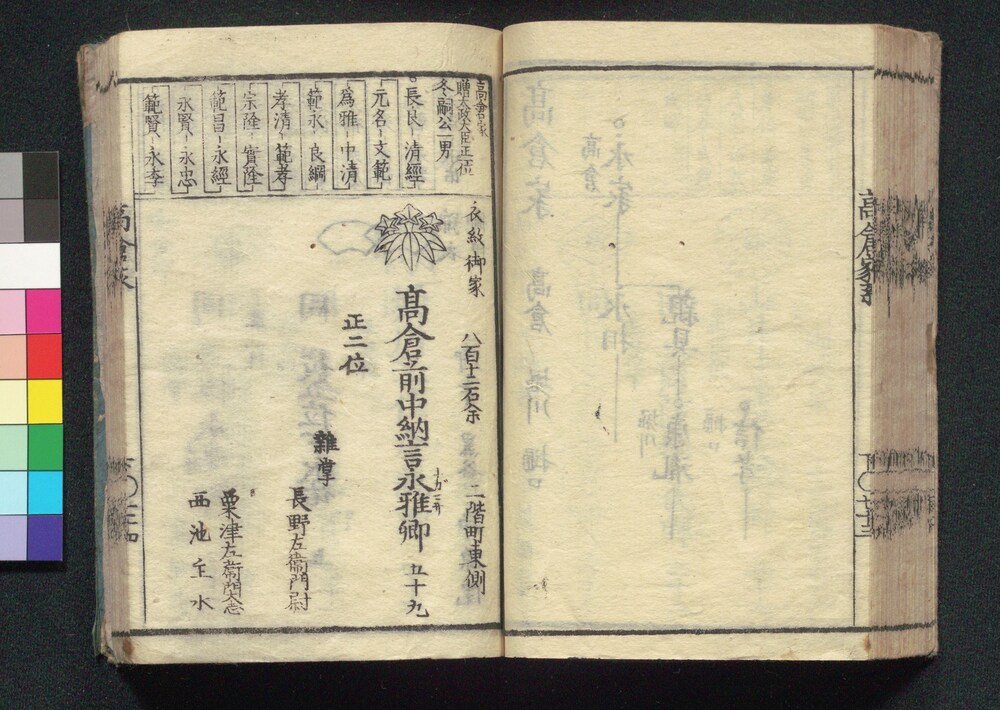 高倉家
下〇七十三
高倉家
贈太政大臣正一位
冬嗣公一男
長良 清經
元名 文範
為雅 中清
範永 良綱
孝清 範孝
宗隆 實隆
範昌 永經
永賢 永忠
範賢 永季
衣紋御家
八百十二石余
二階町東側
高倉前中納言永雅卿 五十九
正二位
雜掌
長野左衛門尉
粟津左衛門大志
西池主水
高倉家